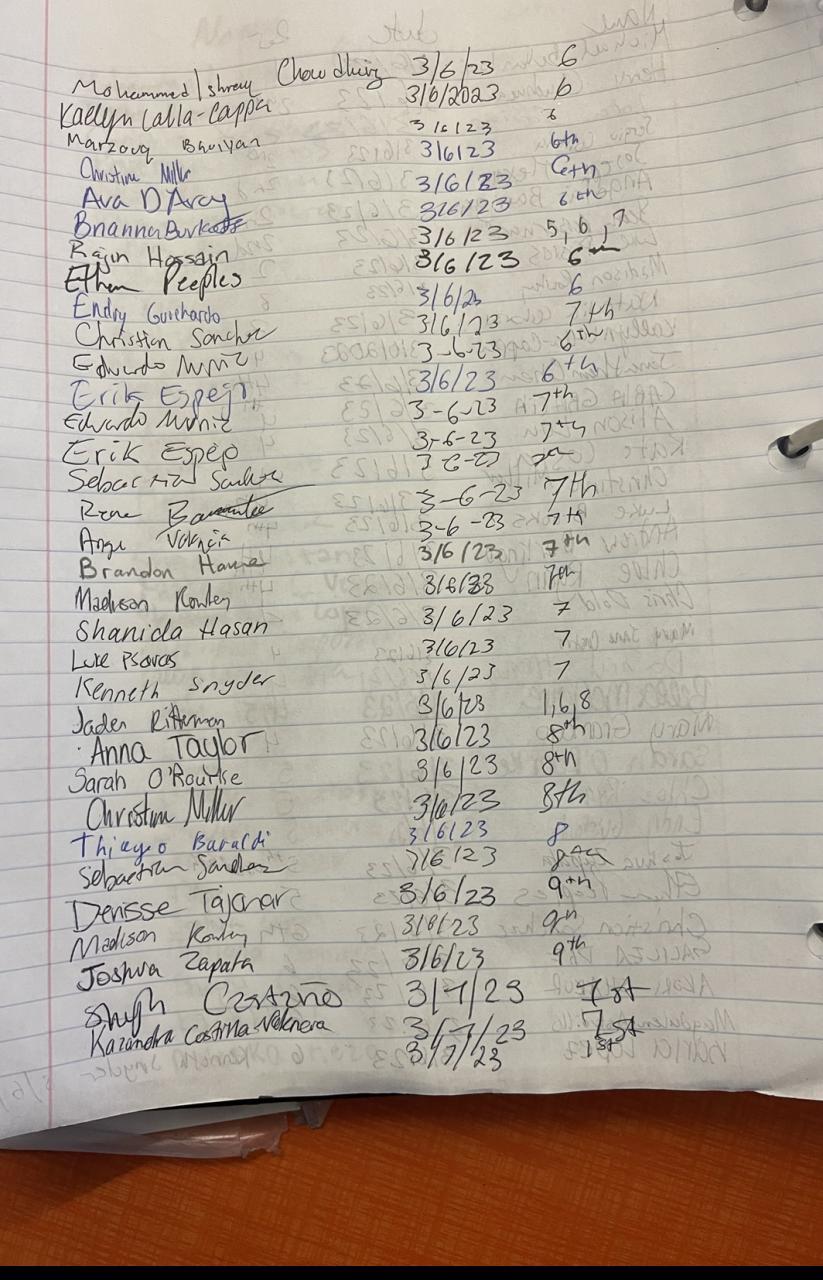 Mohammed Ishraq Chowdhury 3/6/23 6
Kaelyn Calla-Cappa 3/6/2023 6
Marzouq Bhuiyan 3/6/23 6
Christine Miller 3/6/23 6th
Ava D'Arcy 3/6/23 6th
Brianna Burkett 3/6/23 6th
Rajin Hossain 3/6/23 5, 6, 7
Ethan Peeples 3/6/23 6th
Endry Guichardo 3/6/23 6
Christian Sanchez 3/6/23 7th
Edvardo Muniz 3-6-23 6th
Erik Espejo 3/6/23 6th
Edvardo Muniz 3-6-23 7th
Erik Espejo 3-6-23 7th
Sebastian Sanchez 3-6-23
Rene 3-6-23 7th
Valencia 3-6-23 7th
Brandon 3/6/23 7th
Madison Rowley 3/6/23 7th
Shanida Hasan 3/6/23 7
Luke Psaras 3/6/23 7
Kenneth Snyder 3/6/23 7
Jaden Ritterman 3/6/23 1,6,8
Anna Taylor 3/6/23 8th
Sarah O'Rourke 3/6/23 8th
Christine Miller 3/6/23 8th
Thiago Baraldi 3/6/23 8
Sebastian Sanchez 3/6/23 8th
Denisse Tajonar 3/6/23 9th
Madison Rowley 3/6/23 9th
Joshua Zapata 3/6/23 9th
3/7/23 1st
Kazandra 3/7/23 1st
3/7/23 1st